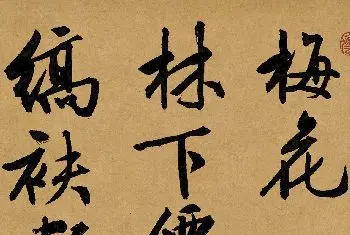 梅花
林下
縞袂